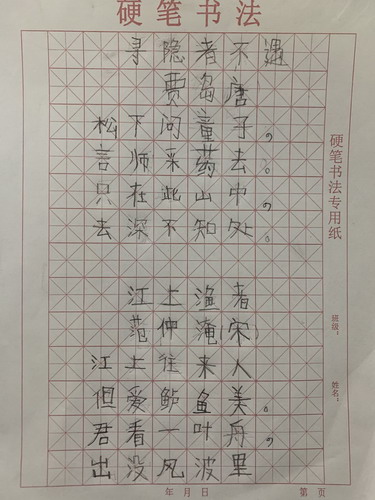 硬笔书法
寻隐者不遇
贾岛唐
松下问童子，
言师采药去。
只在此山中，
去深不知处。
江上渔者
范仲淹宋)
江上往来人
但爱鲈鱼美。
君看一叶舟，
出没风波里
硬笔书法专用纸
班级：
姓名：
年 月 日
第 页